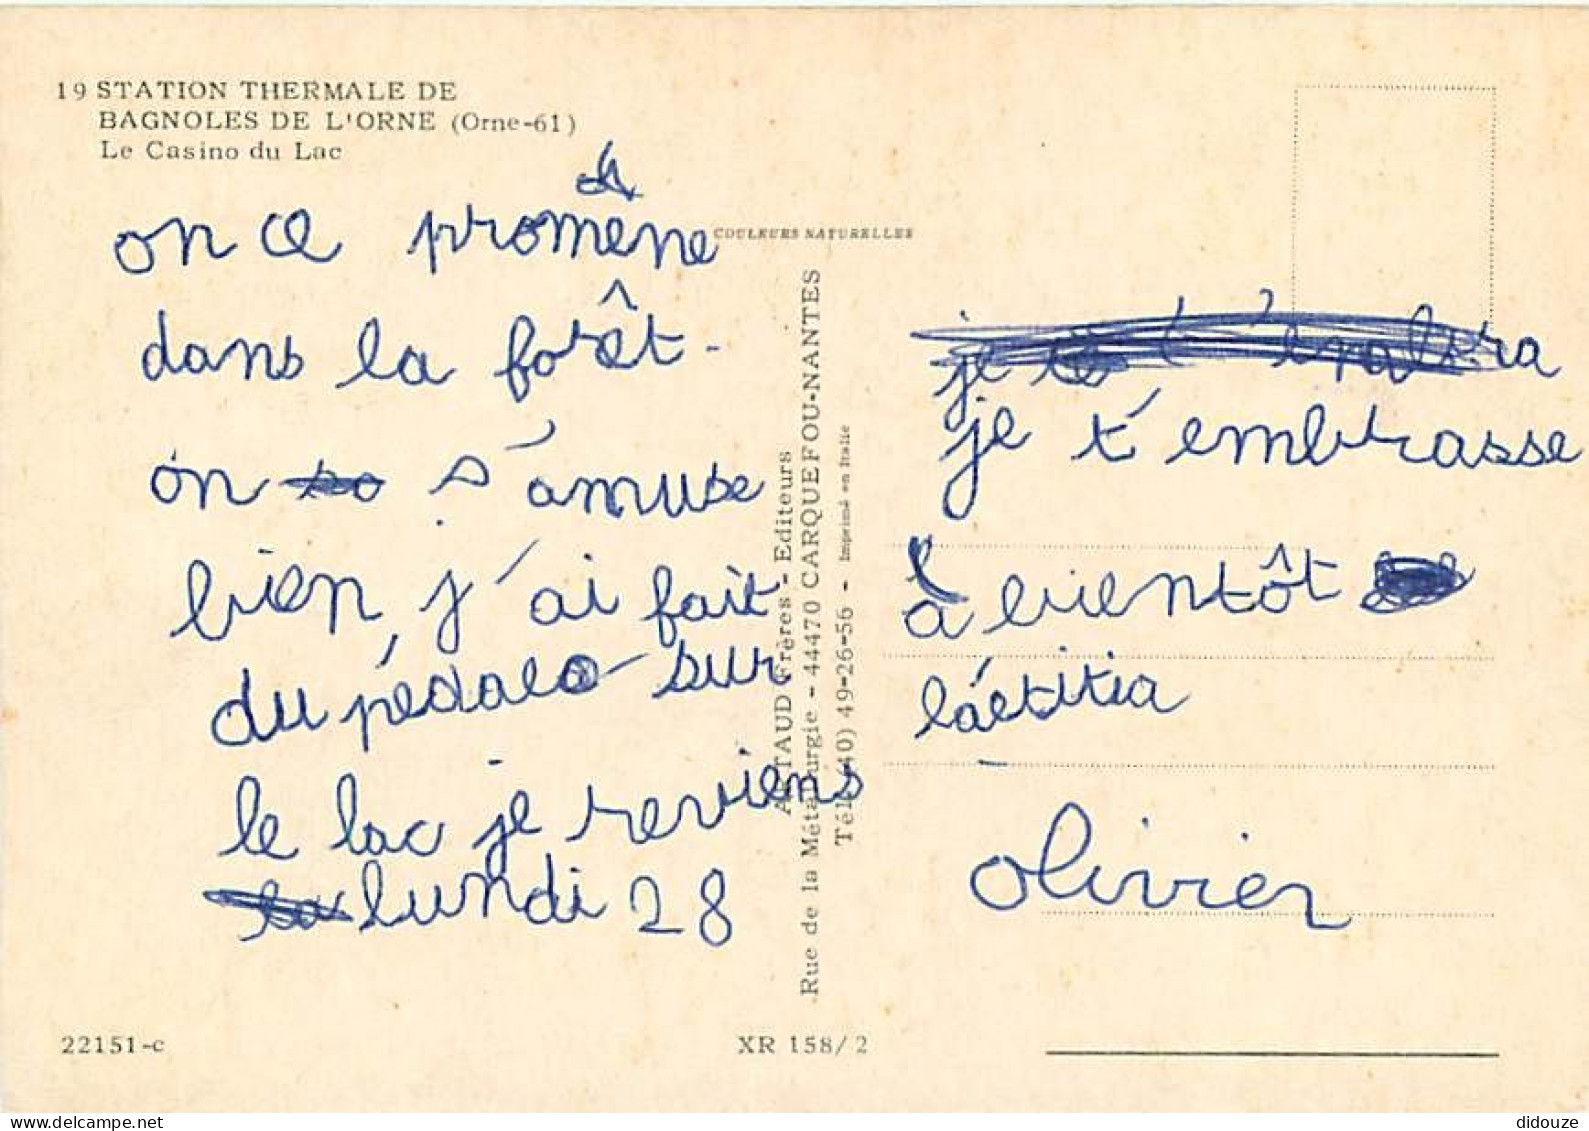 19 STATION THERMALE DE
BAGNOLES DE L'ORNE (Orne-61)
Le Casino du Lac
on ce promène
dans la forêt -
on s'amuse
bien, j'ai fait
du pédalo sur
le lac je reviens
lundi 28
COULEURS NATURELLES
ARTAUD Frères - Editeurs
Rue de la Métallurgie - 44470 CARQUEFOU-NANTES
Tél. (40) 49-26-56 - Imprimé en Italie
je
je t'embrasse
à bientôt
laétitia
olivier
22151-c
XR 158/2
didouze